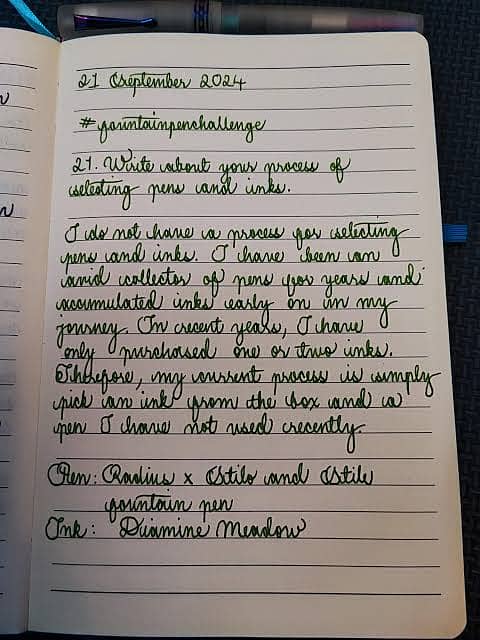 21 September 2024
#fountainpenchallenge
21. Write about your process of
selecting pens and inks.
I do not have a process for selecting
pens and inks. I have been an
avid collector of pens for years and
accumulated inks early on in my
journey. In recent years, I have
only purchased one or two inks.
Therefore, my current process is simply
pick an ink from the box and a
pen I have not used recently.
Pen: Radius x Stilo and Stile
fountain pen
Ink: Diamine Meadow